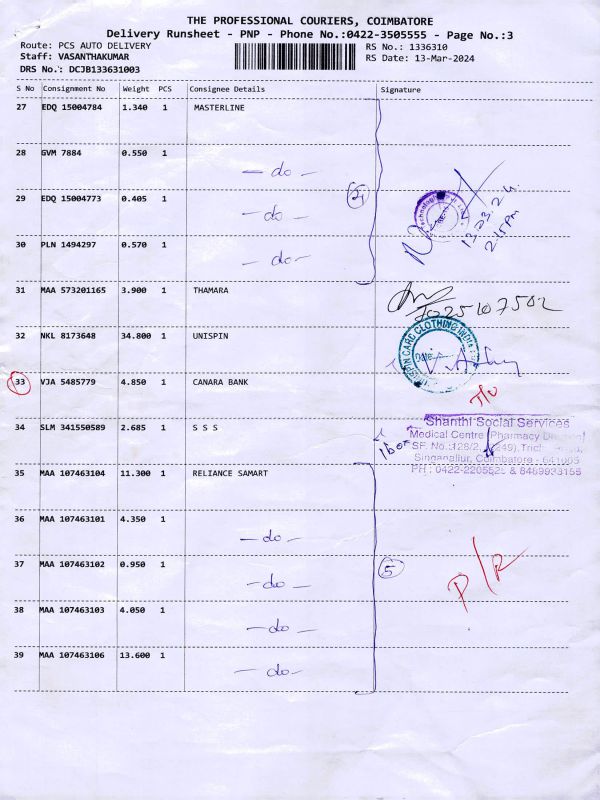 THE PROFESSIONAL COURIERS, COIMBATORE
Delivery Runsheet - PNP - Phone No.:0422-3505555 - Page No.:3
Route: PCS AUTO DELIVERY RS No.: 1336310
Staff: VASANTHAKUMAR RS Date: 13-Mar-2024
DRS No.: DCJB133631003
S No Consignment No Weight PCS Consignee Details Signature
27 EDQ 15004784 1.340 1 MASTERLINE
28 GVM 7884 0.550 1 - do -
29 EDQ 15004773 0.405 1 - do - 4
30 PLN 1494297 0.570 1 - do -
13.03.24
2.15pm
31 MAA 573201165 3.900 1 THAMARA
7025107502
32 NKL 8173648 34.800 1 UNISPIN
CARE CLOTHING INDIA
DATE
33 VJA 5485779 4.850 1 CANARA BANK
34 SLM 341550589 2.685 1 S S S
1 box
Shanthi Social Services
Medical Centre (Pharmacy
SF. No.:128/2,
Singanallur, Coimbatore - 641005
PH : 0422-2205525 &
35 MAA 107463104 11.300 1 RELIANCE SAMART
36 MAA 107463101 4.350 1 - do -
37 MAA 107463102 0.950 1 - do - 5 P/R
38 MAA 107463103 4.050 1 - do -
39 MAA 107463106 13.600 1 - do -